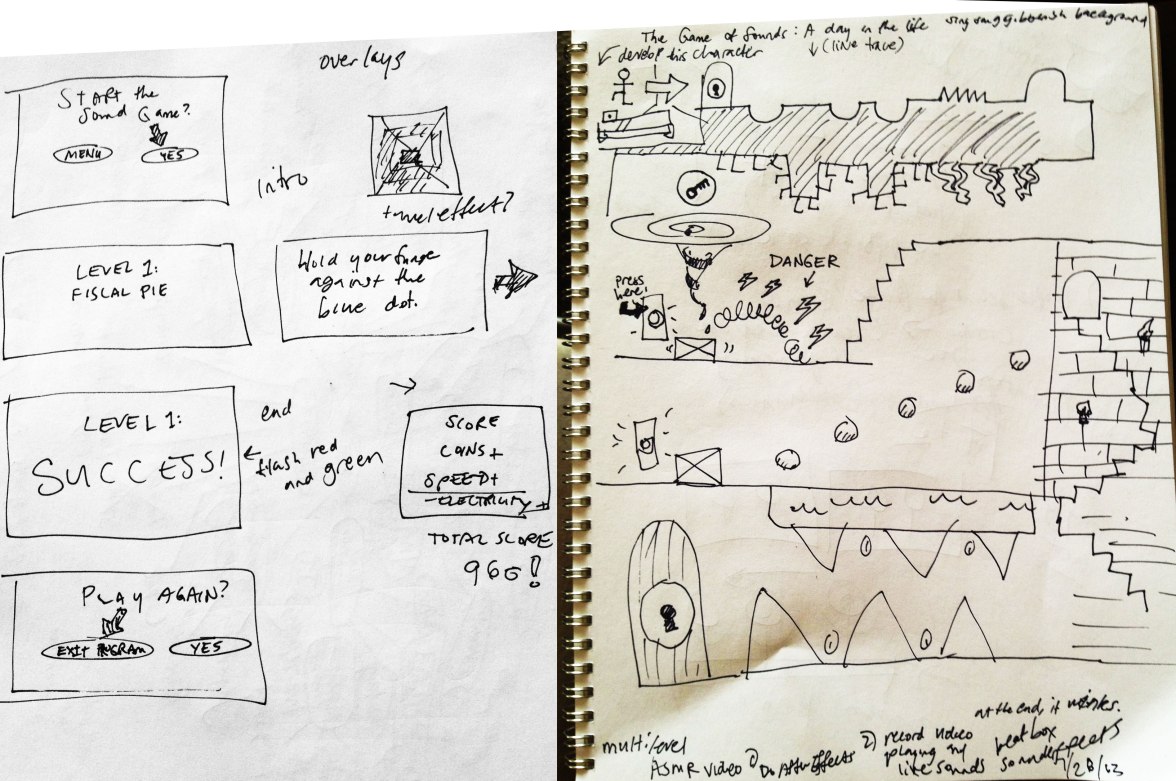 overlays
START the
Sound Game?
MENU
YES
intro
tunnel effect?
LEVEL 1:
FISCAL PIE
Hold your finge
against the
blue dot.
LEVEL 1:
SUCCESS!
end
flash red
and green
SCORE
COINS +
SPEED +
- ELECTRICITY +
TOTAL SCORE
966!
PLAY AGAIN?
EXIT PROGRAM
YES
The Game of Sounds: A day in the life
sing song gibberish background
develop this character
(line trace)
DANGER
press
here!
at the end, it
multilevel
ASMR video
1) Do After Effects
2) record video
playing my
live sounds
beatbox
sound effects
1/28/13